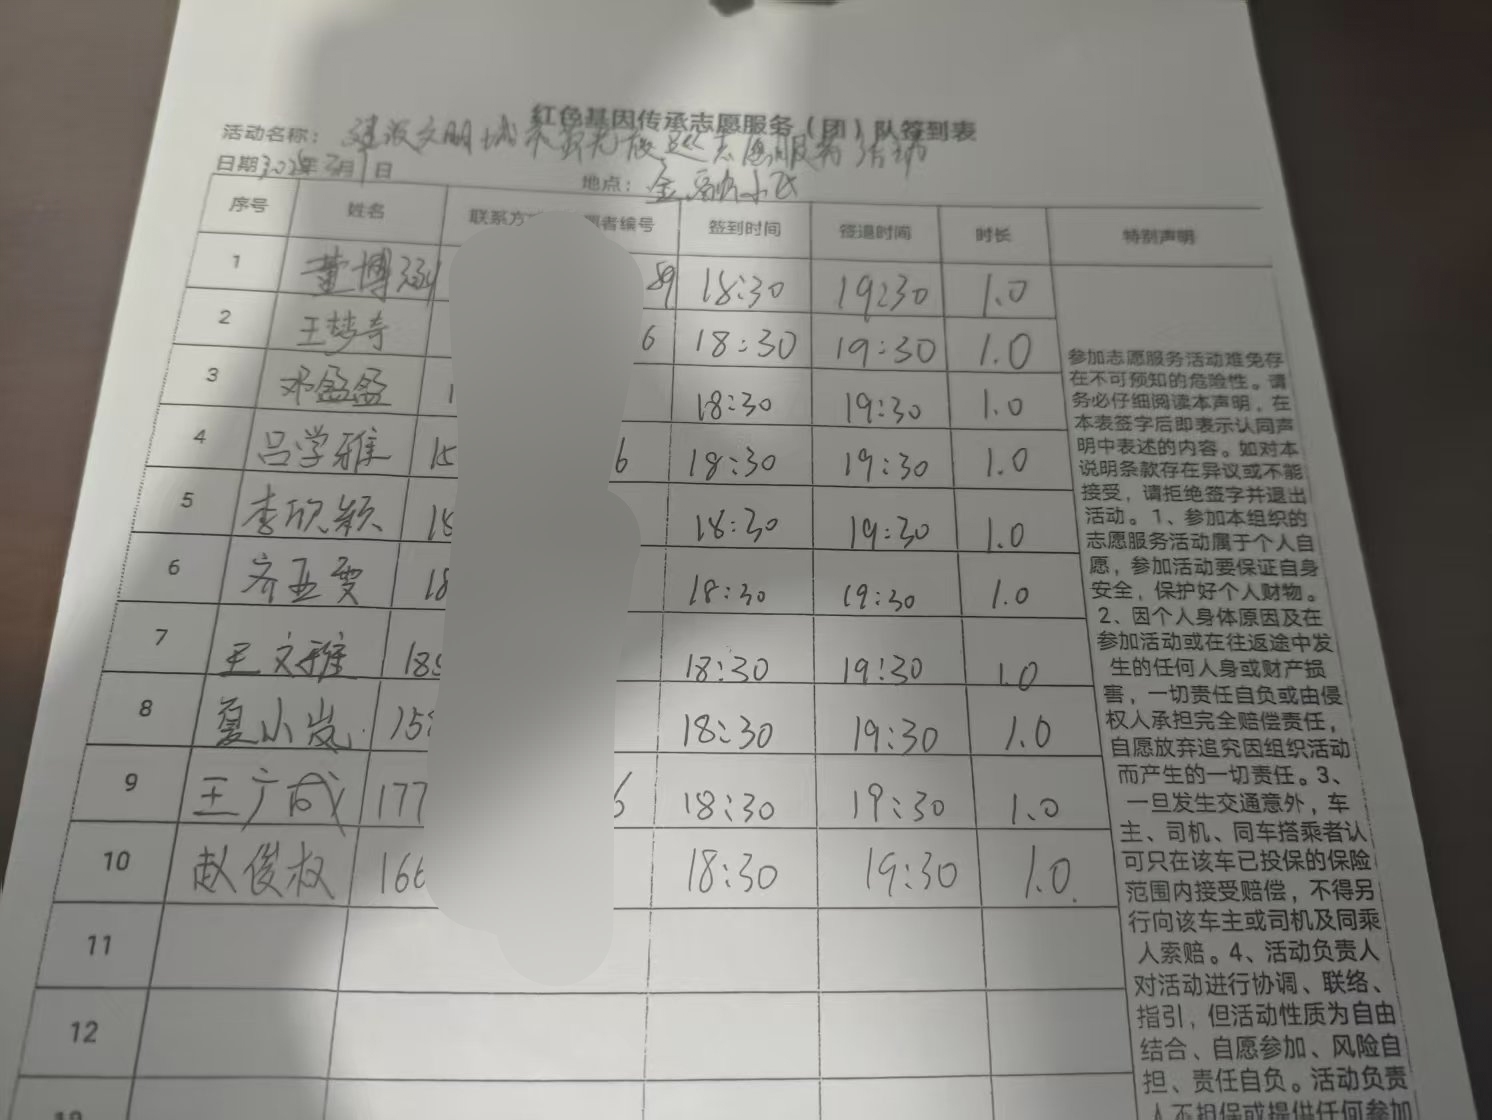 红色基因传承志愿服务（团）队签到表
活动名称： 建设文明城 志愿服务活动
日期 年 月 日 地点： 金 小区
序号 姓名 联系方 者编号 签到时间 签退时间 时长 特别声明
1 董博涵 89 18:30 19:30 1.0
2 王梦奇 6 18:30 19:30 1.0
3 邓盈盈 1 18:30 19:30 1.0
4 吕学雅 15 6 18:30 19:30 1.0
5 李欣颖 15 18:30 19:30 1.0
6 齐亚雯 18 18:30 19:30 1.0
7 王文雅 18 18:30 19:30 1.0
8 夏小岚 15 18:30 19:30 1.0
9 王广成 177 6 18:30 19:30 1.0
10 赵俊权 166 18:30 19:30 1.0
11
12
参加志愿服务活动难免存
在不可预知的危险性。请
务必仔细阅读本声明，在
本表签字后即表示认同声
明中表述的内容。如对本
说明条款存在异议或不能
接受，请拒绝签字并退出
活动。1、参加本组织的
志愿服务活动属于个人自
愿，参加活动要保证自身
安全，保护好个人财物。
2、因个人身体原因及在
参加活动或在往返途中发
生的任何人身或财产损
害，一切责任自负或由侵
权人承担完全赔偿责任，
自愿放弃追究因组织活动
而产生的一切责任。3、
一旦发生交通意外，车
主、司机、同车搭乘者认
可只在该车已投保的保险
范围内接受赔偿，不得另
行向该车主或司机及同乘
人索赔。4、活动负责人
对活动进行协调、联络、
指引，但活动性质为自由
结合、自愿参加、风险自
担、责任自负。活动负责
人不担保或提供任何参加